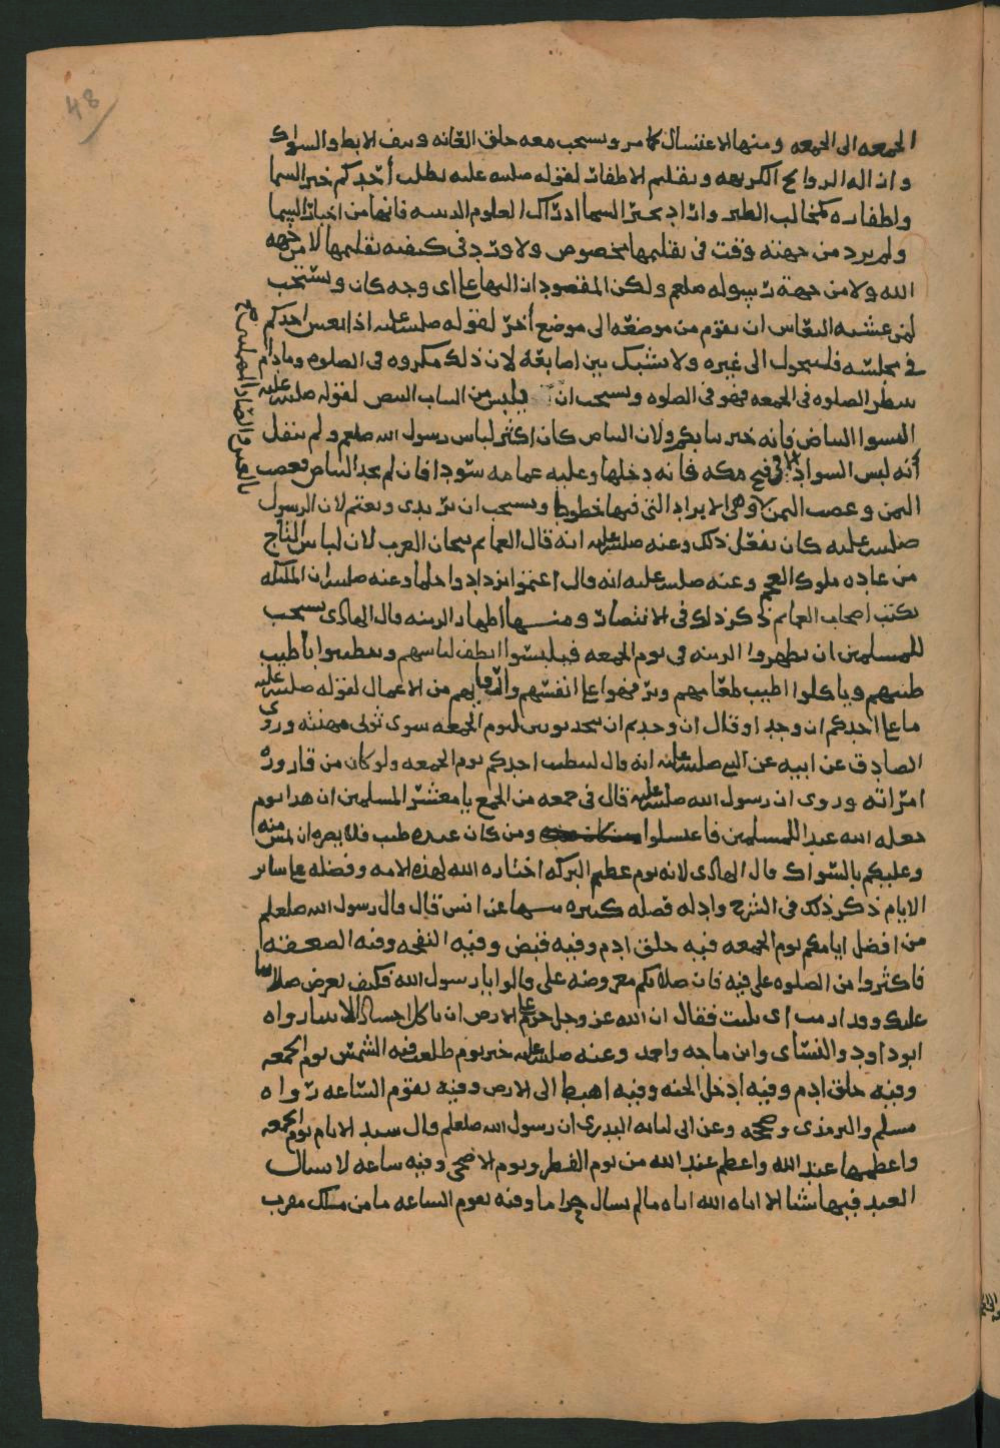 48
الجمعه الى الجمعه ومنها الاغتسال كما مر ويستحب معه حلق العانه ونتف الابط والسواك
وازاله الروايح الكريهه وتقليم الاظفار لقوله صلى الله عليه يطلب أحدكم خبر السما
واظفاره كمخالب الطير واراد بخبر السما ادراك العلوم الدينيه فانها من اخبار السما
ولم يرد من جهته وقت في تقليمها مخصوص ولا ورد في كيفيه تقليمها لا من جهه
الله ولا من جهة رسوله صلعم ولكن المقصود ازالتها على اى وجه كان ويستحب
لمن غشيه النعاس ان يقوم من موضعه الى موضع أخر لقوله صلى الله عليه اذا نعس احدكم
في مجلسه فليتحول الى غيره ولا يشبك بين اصابعه لان ذلك مكروه في الصلوه وما دام
ينتظر الصلوه في الجمعه فهو في الصلوه ويستحب ان يلبس من الثياب البيض لقوله صلى الله عليه
البسوا البياض فانه خير ثيابكم ولان البياض كان اكثر لباس رسول الله صلعم ولم ينقل
أنه لبس السواد الا في فتح مكه فانه دخلها وعليه عمامه سودا فان لم يجد البياض فعصب
اليمن وعصب اليمن وهي الابراد التي فيها خطوط ويستحب ان يرتدى ويعتم لان الرسول
صلى الله عليه كان يفعل ذلك وعنه صلى الله عليه انه قال العمايم تيجان العرب لان لباس التاج
من عاده ملوك العجم وعنه صلى الله عليه انه قال اعتموا تزدادوا حلما وعنه صلى الله ان الملئكه
تكتب اصحاب العمايم ذكر ذلك في الانتصار ومنها اظهار الزينه قال الهادى يستحب
للمسلمين ان يظهروا الزينه في يوم الجمعه فيلبسوا انظف لباسهم ويتطيبوا باطيب
طيبهم وياكلوا اطيب طعامهم ويرفهوا على انفسهم وارقايهم من الاعمال لقوله صلى الله عليه
ما على احدكم ان وجد او قال ان وجدتم ان يتخذ ثوبين ليوم الجمعه سوى ثوبى مهنته وروى
الصادق عن ابيه عن النبي صلى الله عليه انه قال ليتطيب احدكم يوم الجمعه ولو كان من قاروره
امرأته وروى ان رسول الله صلى الله عليه قال في جمعه من الجمع يا معشر المسلمين ان هذا يوم
جعله الله عيدا للمسلمين فاغتسلوا ومن كان عنده طيب فلا يضره ان يمس منه
وعليكم بالسواك قال الهادى لانه يوم عظيم البركه اختاره الله لهذه الامه وفضله على ساير
الايام ذكر ذلك في الشرح وادله فضله كثيره منها عن انس قال قال رسول الله صلعلم
من افضل ايامكم يوم الجمعه فيه خلق ادم وفيه قبض وفيه النفخه وفيه الصعقه
فاكثروا من الصلوه على فيه فان صلاتكم معروضه على قالوا يا رسول الله فكيف تعرض صلاتنا
عليك وقد ارمت اى بليت فقال ان الله عز وجل حرم على الارض ان تاكل اجساد الانبيا رواه
ابو داود والنسائى وابن ماجه واحمد وعنه صلى الله عليه خير يوم طلعت فيه الشمس يوم الجمعه
وفيه خلق ادم وفيه ادخل الجنه وفيه اهبط الى الارض وفيه تقوم الساعه رواه
مسلم والترمذى وصححه وعن ابى لبابه البدرى ان رسول الله صلعلم قال سيد الايام يوم الجمعه
واعظمها عند الله واعظم عند الله من يوم الفطر ويوم الاضحى وفيه ساعه لا يسال
العبد فيها شيئا الا اتاه الله اياه مالم يسال حراما وفيه تقوم الساعه ما من ملك مقرب
بالعين والصاد المهملتين صح